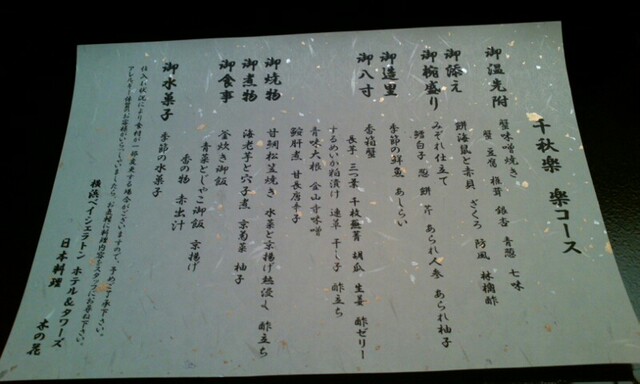 千秋楽 楽コース
御温先附 蟹味噌焼き
蟹 豆腐 椎茸 銀杏 青葱 七味
御添え 餅海鼠と赤貝 ざくろ 防風 林檎酢
御椀盛り みぞれ仕立て
鱈白子 葱 餅 芹 あられ人参 あられ柚子
御造里 季節の鮮魚 あしらい
御八寸 香箱蟹
長芋 三つ葉 千枚蕪菁 胡瓜 生姜 酢ゼリー
するめいか粕漬け 速草 干し子 酢立ち
青味大根 金山寺味噌
鮟肝煮 甘長唐辛子
御焼物 甘鯛松笠焼き 水菜と京揚げ熱浸く 酢立ち
御煮物 海老芋と穴子煮 京菊菜 柚子
御食事 釜炊き御飯
青菜とじゃこ御飯 京揚げ
香の物 赤出汁
御水菓子 季節の水菓子
仕入れ状況により食材が一部変更する場合がございますので、予めご了承下さい。
アレルギー体質のお客様がいらっしゃいましたら、お気軽に料理内容をスタッフにお尋ね下さい。
横浜ベイシェラトン ホテル&タワーズ
日本料理 木の花